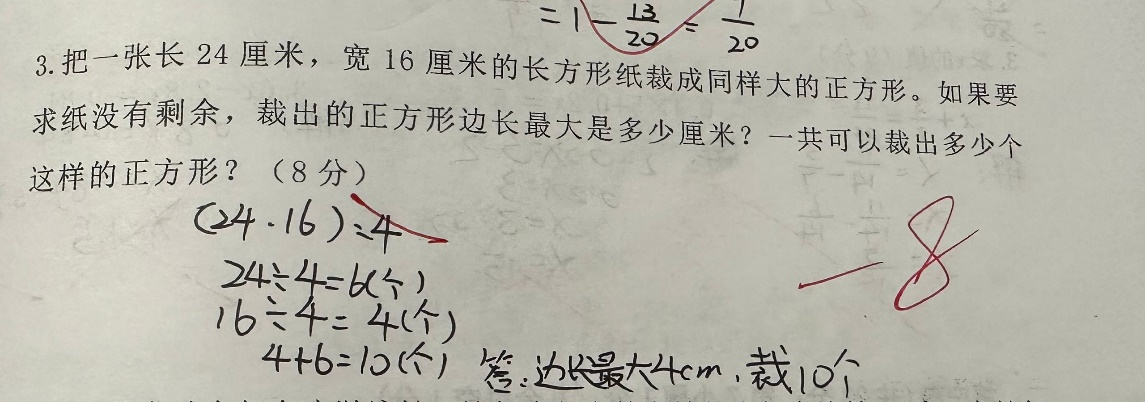 = 1 - 13/20 = 1/20
3.把一张长 24 厘米，宽 16 厘米的长方形纸裁成同样大的正方形。如果要
求纸没有剩余，裁出的正方形边长最大是多少厘米？一共可以裁出多少个
这样的正方形？（8 分）
(24.16)=4
24÷4=6(个)
-8
16÷4=4(个)
4+6=10(个) 答:边长最大4cm,裁10个